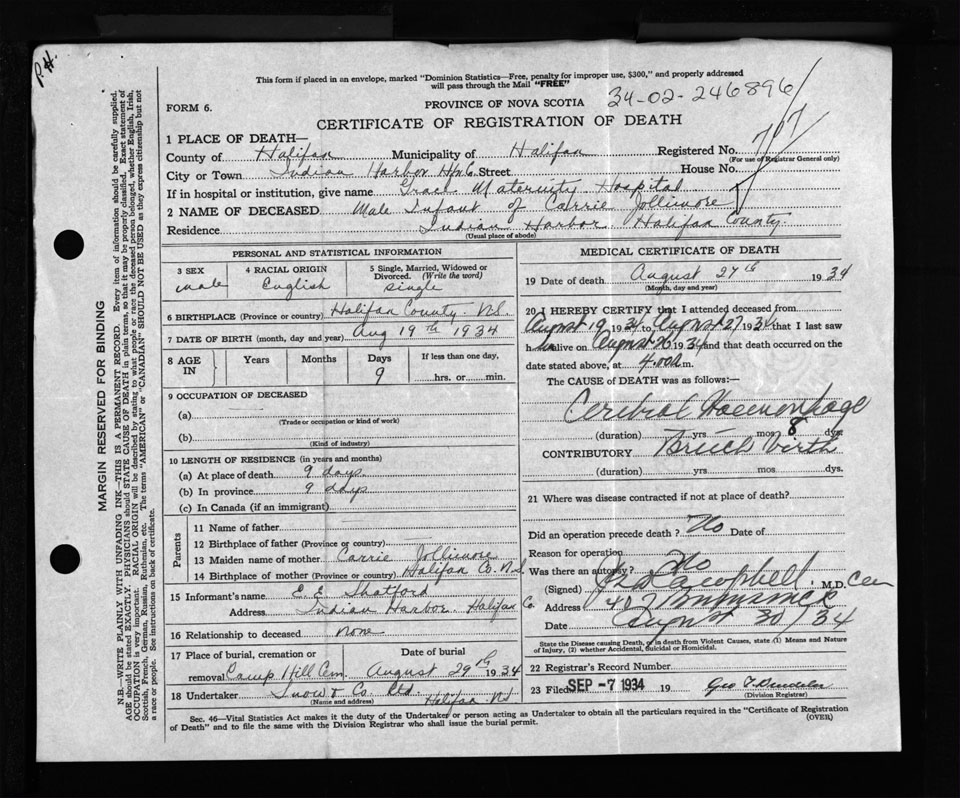 P.H.
This form if placed in an envelope, marked "Dominion Statistics—Free, penalty for improper use, $300," and properly addressed
will pass through the Mail "FREE"
FORM 6.
PROVINCE OF NOVA SCOTIA
34-02-246896
CERTIFICATE OF REGISTRATION OF DEATH
1 PLACE OF DEATH—
Registered No. 707
(For use of Registrar General only)
County of Halifax Municipality of Halifax
City or Town Indian Harbor Hfx Co. Street House No.
If in hospital or institution, give name Grace Maternity Hospital
2 NAME OF DECEASED Male Infant of Carrie Jollimore
Residence Indian Harbor, Halifax County
(Usual place of abode)
PERSONAL AND STATISTICAL INFORMATION
3 SEX male
4 RACIAL ORIGIN English
5 Single, Married, Widowed or Divorced. (Write the word) single
6 BIRTHPLACE (Province or country) Halifax County N.S.
7 DATE OF BIRTH (month, day and year) Aug 19th 1934
8 AGE IN Years Months Days 9 If less than one day, hrs. or min.
9 OCCUPATION OF DECEASED
(a)
(Trade or occupation or kind of work)
(b)
(Kind of industry)
10 LENGTH OF RESIDENCE (in years and months)
(a) At place of death 9 days
(b) In province 9 days
(c) In Canada (if an immigrant)
Parents
11 Name of father
12 Birthplace of father (Province or country)
13 Maiden name of mother Carrie Jollimore
14 Birthplace of mother (Province or country) Halifax Co. N.S.
15 Informant's name E. E. Shatford
Address Indian Harbor Halifax Co.
16 Relationship to deceased None
17 Place of burial, cremation or removal Camp Hill Cem. Date of burial August 29th 1934
18 Undertaker Snow & Co. Ltd. Halifax NS
(Name and address)
MEDICAL CERTIFICATE OF DEATH
19 Date of death August 27th 1934
(Month, day and year)
20 I HEREBY CERTIFY that I attended deceased from
August 19 1934 to August 27 1934 that I last saw
h im alive on August 26 1934 and that death occurred on the
date stated above, at 4.00 a m.
The CAUSE OF DEATH was as follows:—
Cerebral Haemorrhage
(duration) yrs mos 8 dys.
CONTRIBUTORY Breech birth
(duration) yrs mos dys.
21 Where was disease contracted if not at place of death?
Did an operation precede death? No Date of
Reason for operation
Was there an autopsy? No
(Signed) Campbell M.D.
Address
Date August 30/34
State the Disease causing Death, or in death from Violent Causes, state (1) Means and Nature
of Injury, (2) whether Accidental, Suicidal or Homicidal.
22 Registrar's Record Number
23 Filed SEP -7 1934 19 Geo
(Division Registrar)
Sec. 46—Vital Statistics Act makes it the duty of the Undertaker or person acting as Undertaker to obtain all the particulars required in the "Certificate of Registration
of Death" and to file the same with the Division Registrar who shall issue the burial permit.
(OVER)
MARGIN RESERVED FOR BINDING
N.B.—WRITE PLAINLY WITH UNFADING INK—THIS IS A PERMANENT RECORD. Every item of information should be carefully supplied.
AGE should be stated EXACTLY. PHYSICIANS should STATE CAUSE OF DEATH in plain terms, so that it may be properly classified. Exact statement of
OCCUPATION is very important. RACIAL ORIGIN will be described by stating to what people or race the deceased person belonged, whether English, Irish,
Scottish, French, German, Russian, Ruthenian, etc. The terms "AMERICAN" or "CANADIAN" SHOULD NOT BE USED as they express citizenship but not
a race or people. See instructions on back of certificate.